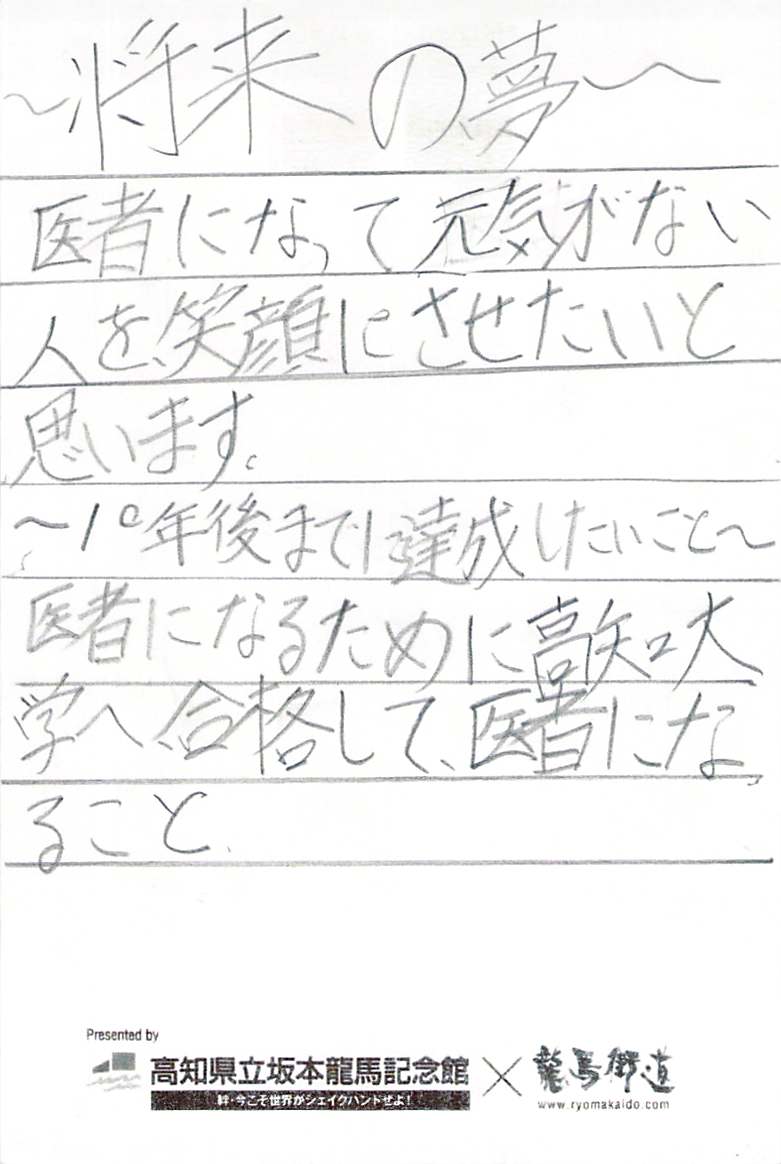 ～将来の夢～
医者になって元気がない
人を笑顔にさせたいと
思います。
～10年後までに達成したいこと～
医者になるために高知大
学へ合格して、医者にな
ること。
Presented by
高知県立坂本龍馬記念館×龍馬街道
絆・今こそ世界がシェイクハンドぜよ!
www.ryomakaido.com